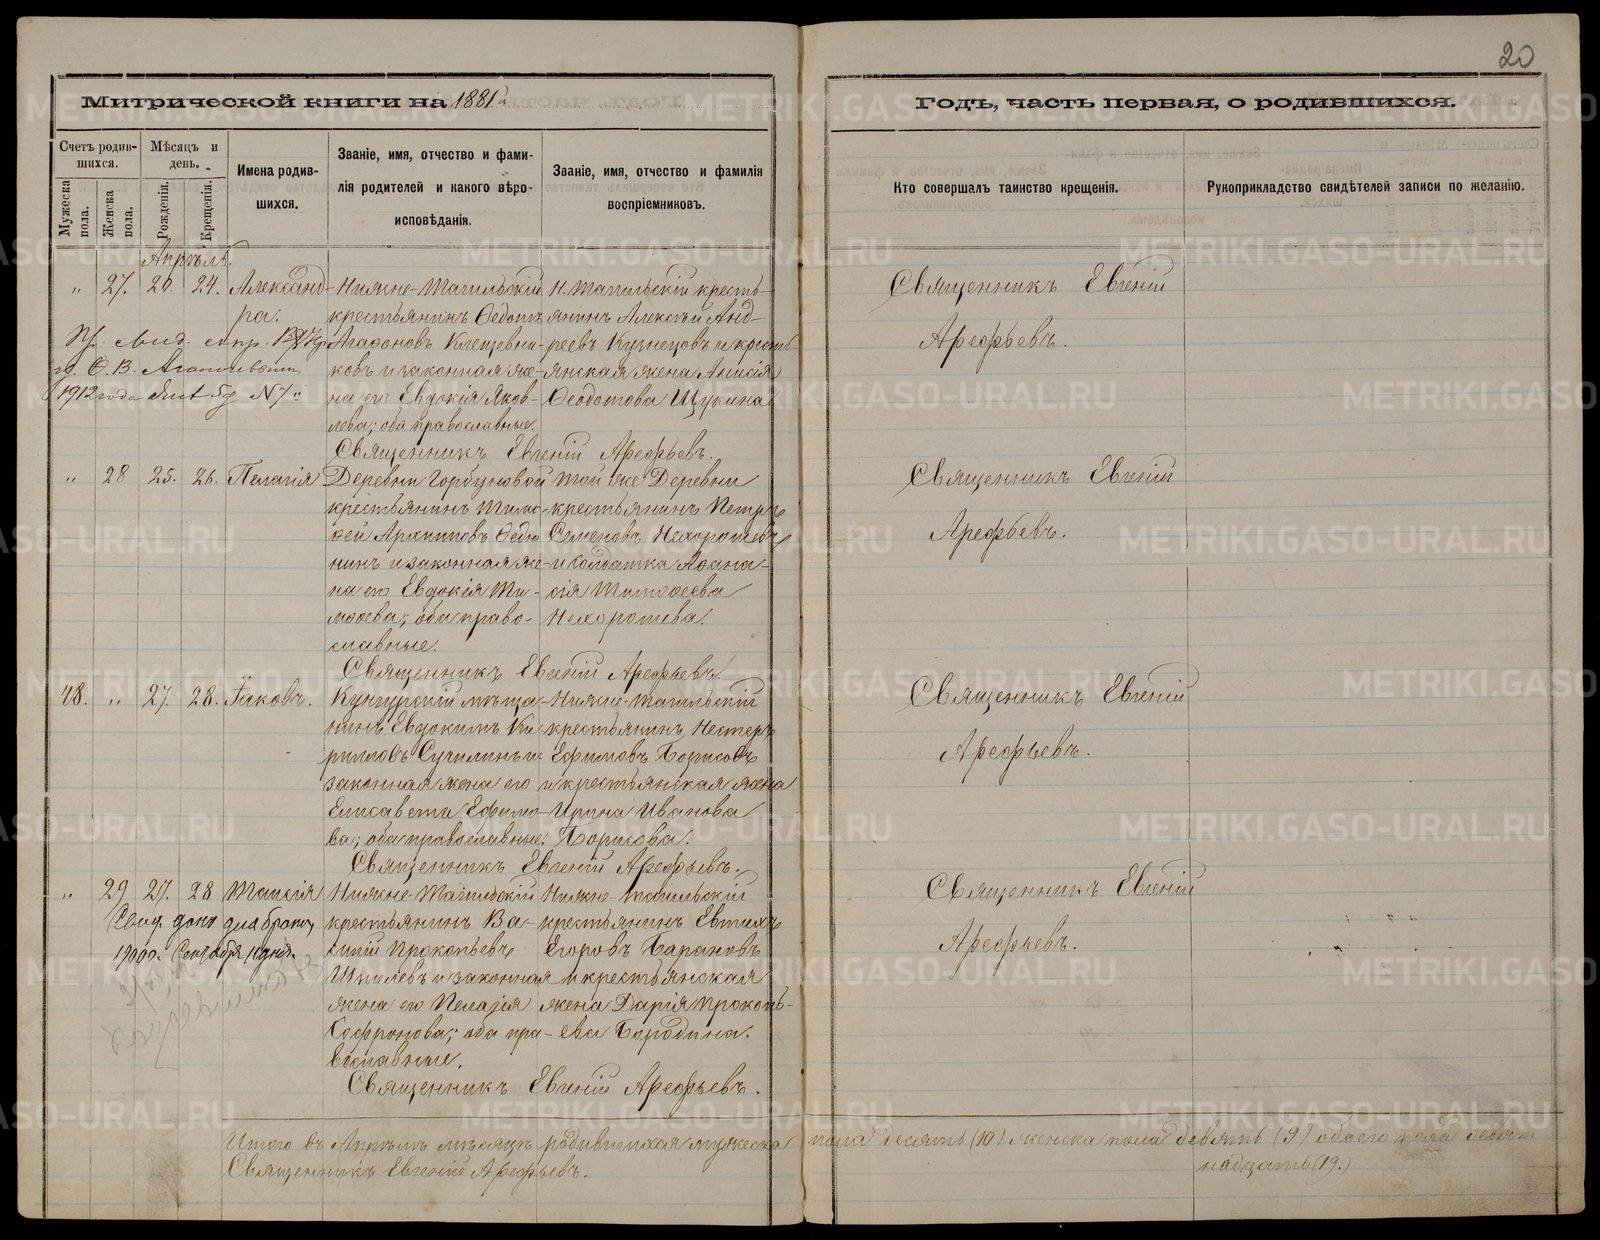 20
Митрической книги на 1881й
Годъ, часть первая, о родившихся.
Счетъ родившихся.
Мужеска пола.
Женска пола.
Мѣсяцъ и день.
Рожденія.
Крещенія.
Имена родившихся.
Званіе, имя, отчество и фамилія родителей и какого вѣроисповѣданія.
Званіе, имя, отчество и фамилія воспріемниковъ.
Кто совершалъ таинство крещенія.
Рукоприкладство свидѣтелей записи по желанію.
Апрѣль.
" 27. 20. 24. Александ-
ра.
Нижне-Тагильскій
крестьянинъ Ѳедотъ
Агафоновъ Клещевни-
ковъ и законная же-
на его Евдокія Яков-
лева; оба православные.
Н. Тагильскій кресть-
янинъ Алексѣй Анд-
реевъ Кузнецовъ и кресть-
янская жена Анисія
Ѳеодотова Щукина
Священникъ Евгеній
Арефьевъ.
1912 года
Священникъ Евгеній Арефьевъ.
" 28 25. 26. Пелагія
Деревни Горбуновой
крестьянинъ Тимо-
ѳей Архиповъ Ѳедю
нинъ и законная же-
на его Евдокія Ти-
моѳева; оба право-
славные.
Той же Деревни
крестьянинъ Петръ
Семеновъ Нехорошевъ
и солдатка Аѳана-
сія Тимоѳеева
Нехорошева.
Священникъ Евгеній
Арефьевъ.
Священникъ Евгеній Арефьевъ.
48. " 27. 28. Іаковъ.
Кунгурскій мѣща-
нинъ Евдокимъ Ки-
рилловъ Сучилинъ и
законная жена его
Елисавета Ефимо-
ва; оба православные.
Нижне-Тагильскій
крестьянинъ Нестеръ
Ефимовъ Борисовъ
и крестьянская жена
Ирина Иванова
Борисова.
Священникъ Евгеній
Арефьевъ.
Священникъ Евгеній Арефьевъ.
" 29 27. 28 Таисія
Нижне-Тагильскій
крестьянинъ Ва-
силій Прокопьевъ
Шмелевъ и законная
жена его Пелагія
Софронова; оба пра-
вославные.
Нижне-тагильскій
крестьянинъ Евтихъ
Егоровъ Барановъ
и крестьянская
жена Дарія Прокопь-
ева Бородина.
Священникъ Евгеній
Арефьевъ.
Свид. дано для брака,
1900г. Сентября
Священникъ Евгеній Арефьевъ.
Итого въ Апрѣлѣ мѣсяцѣ родившихся мужеска пола десять (10) женска пола девять (9) обоего пола девят
надцать (19.)
Священникъ Евгеній Арефьевъ.
METRIKI.GASO-URAL.RU